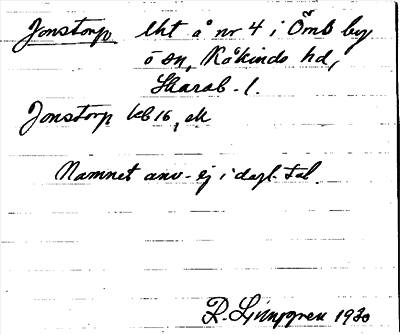 Jonstorp lht å nr 4 i Ömb by
ö sn, Kåkinds hd,
Skarab. l.
Jonstorp kb 16, ek
Namnet anv. ej i dagl. tal.
R. Ljunggren 1930